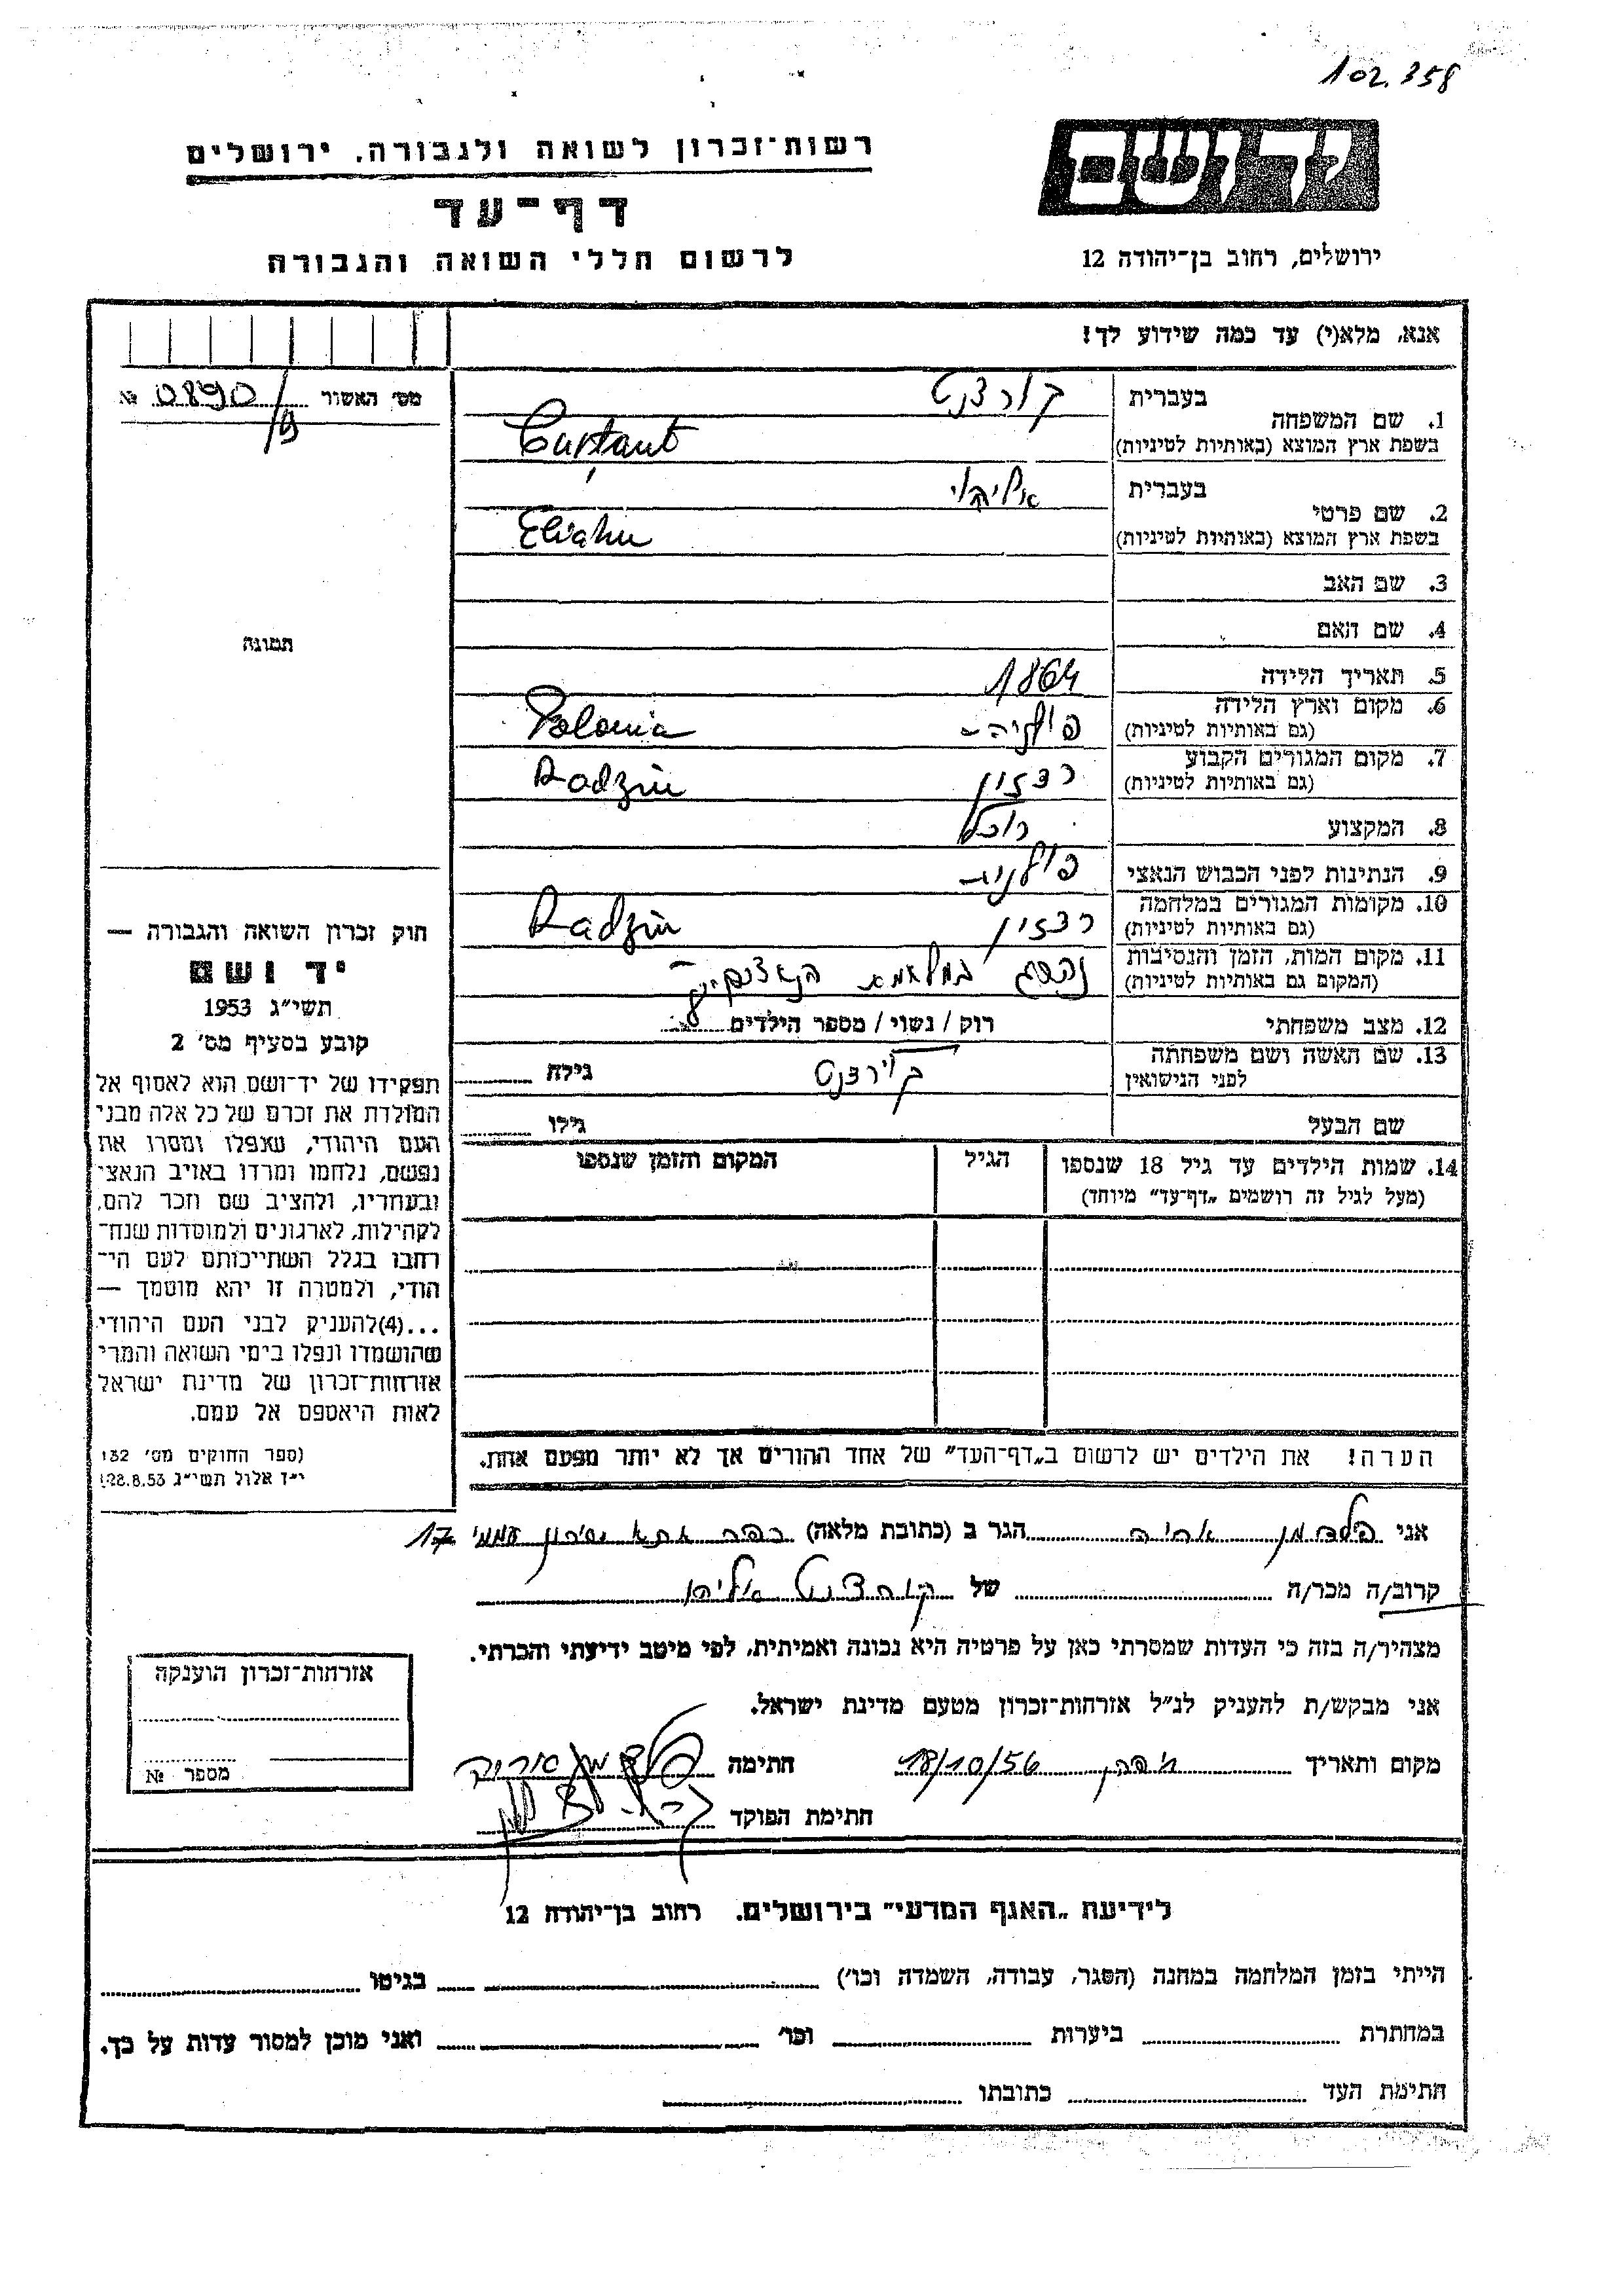 102.358
רשות־זכרון לשואה ולגבורה, ירושלים
דף־עד
לרשום חללי השואה והגבורה
יד ושם
ירושלים, רחוב בן־יהודה 12
אנא, מלא(י) עד כמה שידוע לך!
מס׳ האשור 0890/ № 
1. שם המשפחה
בעברית קורצנט
בשפת ארץ המוצא (באותיות לטיניות) Curţant
2. שם פרטי
בעברית אליהו
בשפת ארץ המוצא (באותיות לטיניות) Eliahu
3. שם האב
4. שם האם
תמונה
5. תאריך הלידה 1864
6. מקום וארץ הלידה
(גם באותיות לטיניות) פולניה Polonia
7. מקום המגורים הקבוע
(גם באותיות לטיניות) רדזין Radzin
8. המקצוע רוכל
9. הנתינות לפני הכבוש הנאצי פולנית
10. מקומות המגורים במלחמה
(גם באותיות לטיניות) רדזין Radzin
11. מקום המות, הזמן והנסיבות
(המקום גם באותיות לטיניות) נהרג במלחמה
12. מצב משפחתי רוק / נשוי / מספר הילדים
13. שם האשה ושם משפחתה
לפני הנישואין קורצנט גילה
שם הבעל גילו
14. שמות הילדים עד גיל 18 שנספו הגיל המקום והזמן שנספו
(מעל לגיל זה רושמים „דף־עד״ מיוחד)
הערה! את הילדים יש לרשום ב„דף־העד״ של אחד ההורים אך לא יותר מפעם אחת.
חוק זכרון השואה והגבורה —
יד ושם
תשי״ג 1953
קובע בסעיף מס׳ 2
תפקידו של יד־ושם הוא לאסוף אל
המולדת את זכרם של כל אלה מבני
העם היהודי, שנפלו ומסרו את
נפשם, נלחמו ומרדו באויב הנאצי
ובעוזריו, ולהציב שם וזכר להם,
לקהילות, לארגונים ולמוסדות שנח־
רבו בגלל השתייכותם לעם הי־
הודי, ולמטרה זו יהא מוסמך —
...(4)להעניק לבני העם היהודי
שהושמדו ונפלו בימי השואה והמרי
אזרחות־זכרון של מדינת ישראל
לאות היאספם אל עמם.
(ספר החוקים מס׳ 132
י״ז אלול תשי״ג 28.8.53)
אני פלדמן אריה הגר ב (כתובת מלאה) כפר אתא שיכון עממי 17
קרוב/ה מכר/ה של קורצנט אליהו
מצהיר/ה בזה כי העדות שמסרתי כאן על פרטיה היא נכונה ואמיתית, לפי מיטב ידיעתי והכרתי.
אני מבקש/ת להעניק לנ״ל אזרחות־זכרון מטעם מדינת ישראל.
מקום ותאריך 18/10/56 חתימה
חתימת הפוקד
אזרחות־זכרון הוענקה
מספר №
לידיעת „האגף המדעי״ בירושלים, רחוב בן־יהודה 12
הייתי בזמן המלחמה במחנה (הסגר, עבודה, השמדה וכו׳) בגיטו
במחתרת ביערות וכו׳ ואני מוכן למסור עדות על כך.
חתימת העד כתובתו